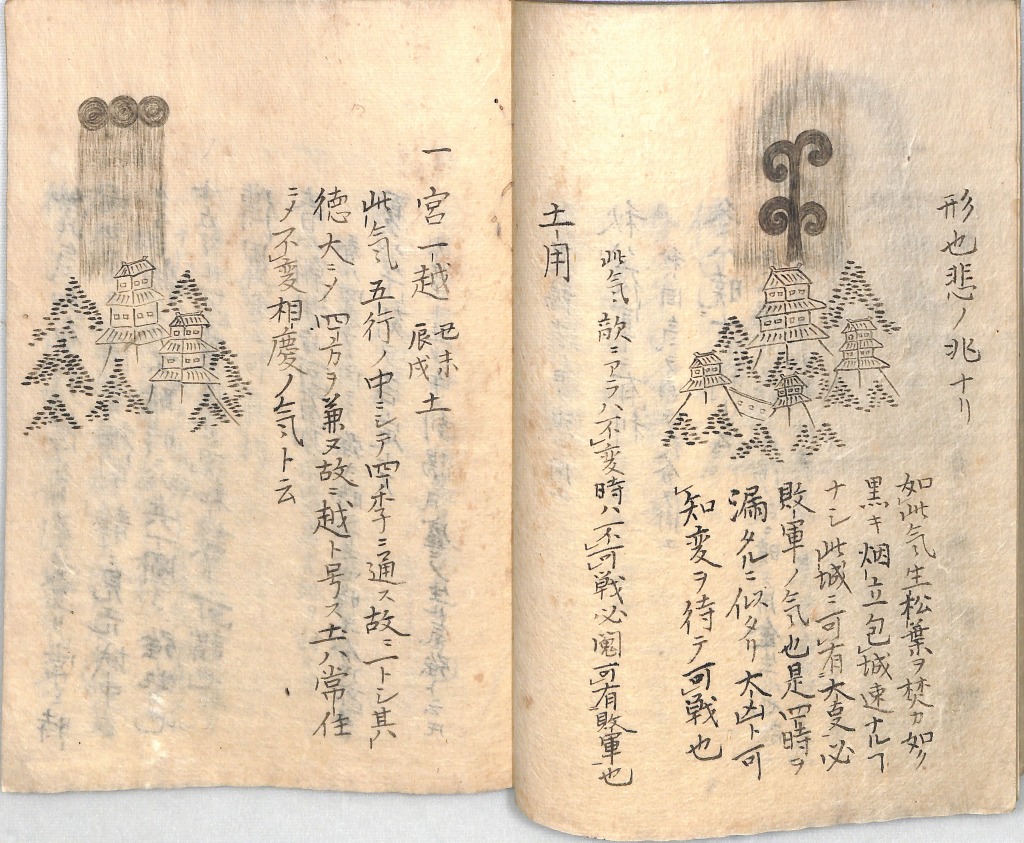 形也悲ノ兆ナリ
如此気生松葉ヲ焚カ如ク
黒キ烟立包城速ナルヿ
ナシ此城ニ可有大変必
敗軍ノ気也是四時ヲ
漏タルニ似タリ大凶ト可
知変ヲ待テ可戦也
此気敵ニアラハ不変時ハ不可戦必可有敗軍也
土用
一宮一越
丑未
辰戌
土
此気五行ノ中ニシテ四季ニ通ス故ニ一トシ其
徳大ニシテ四方ヲ兼又故ニ越ト号ス土ハ常住
ニシテ不変相慶ノ気ト云